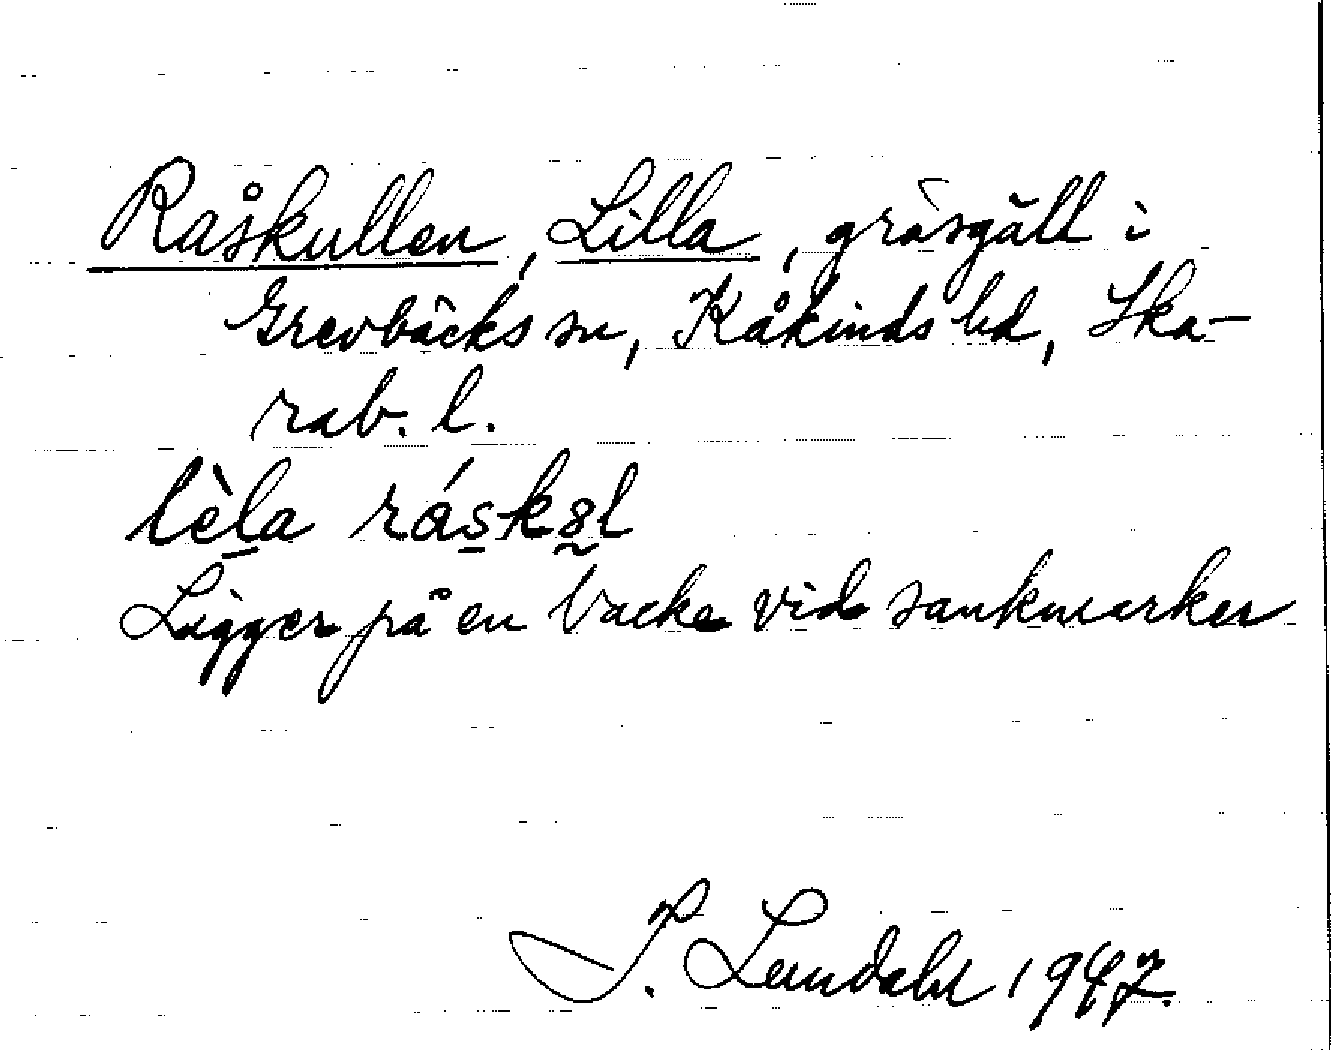 Råskullen, Lilla, gräsgäll i
Grevbäcks sn, Kåkinds hd, Ska-
rab. l.
lèla rásk8l
Ligger på en backe vid sankmarker
I. Lundahl 1947.